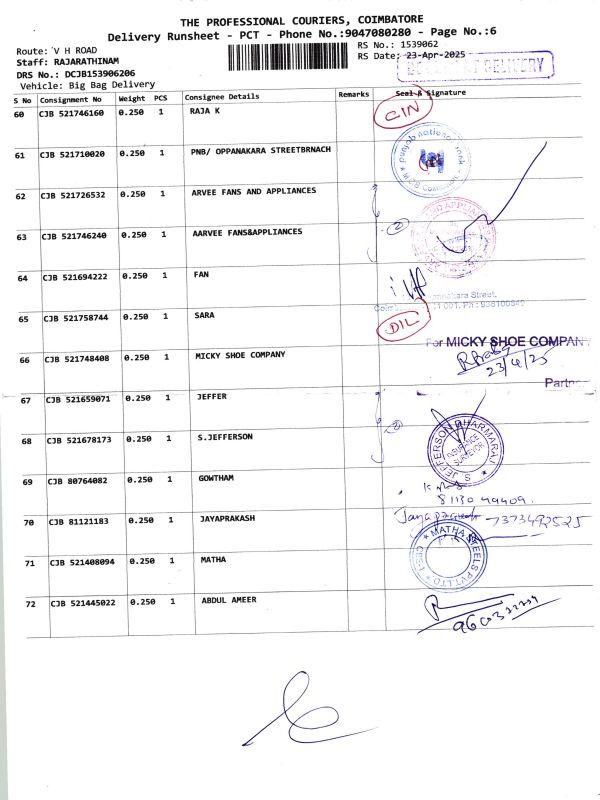 THE PROFESSIONAL COURIERS, COIMBATORE
Delivery Runsheet - PCT - Phone No.:9047080280 - Page No.:6
Route: V H ROAD
RS No.: 1539062
Staff: RAJARATHINAM
RS Date: 23-Apr-2025
DRS No.: DCJB153906206
DELIVERY
Vehicle: Big Bag Delivery
S No Consignment No Weight PCS Consignee Details Remarks Seal & Signature
60 CJB 521746160 0.250 1 RAJA K
61 CJB 521710020 0.250 1 PNB/ OPPANAKARA STREETBRNACH
punjab national bank
62 CJB 521726532 0.250 1 ARVEE FANS AND APPLIANCES
63 CJB 521746240 0.250 1 AARVEE FANS&APPLIANCES
2
64 CJB 521694222 0.250 1 FAN
Street,
65 CJB 521758744 0.250 1 SARA
DIL
For MICKY SHOE COMPAN
66 CJB 521748408 0.250 1 MICKY SHOE COMPANY
23/4/25
Partn
67 CJB 521659071 0.250 1 JEFFER
68 CJB 521678173 0.250 1 S.JEFFERSON
2
S. JEFFERSON DHARMARAJ
INSURANCE
SURVEYOR
69 CJB 80764082 0.250 1 GOWTHAM
81130 49409.
70 CJB 81121183 0.250 1 JAYAPRAKASH
7373492525
71 CJB 521408094 0.250 1 MATHA
MATHA STEELS PVT LTD
72 CJB 521445022 0.250 1 ABDUL AMEER